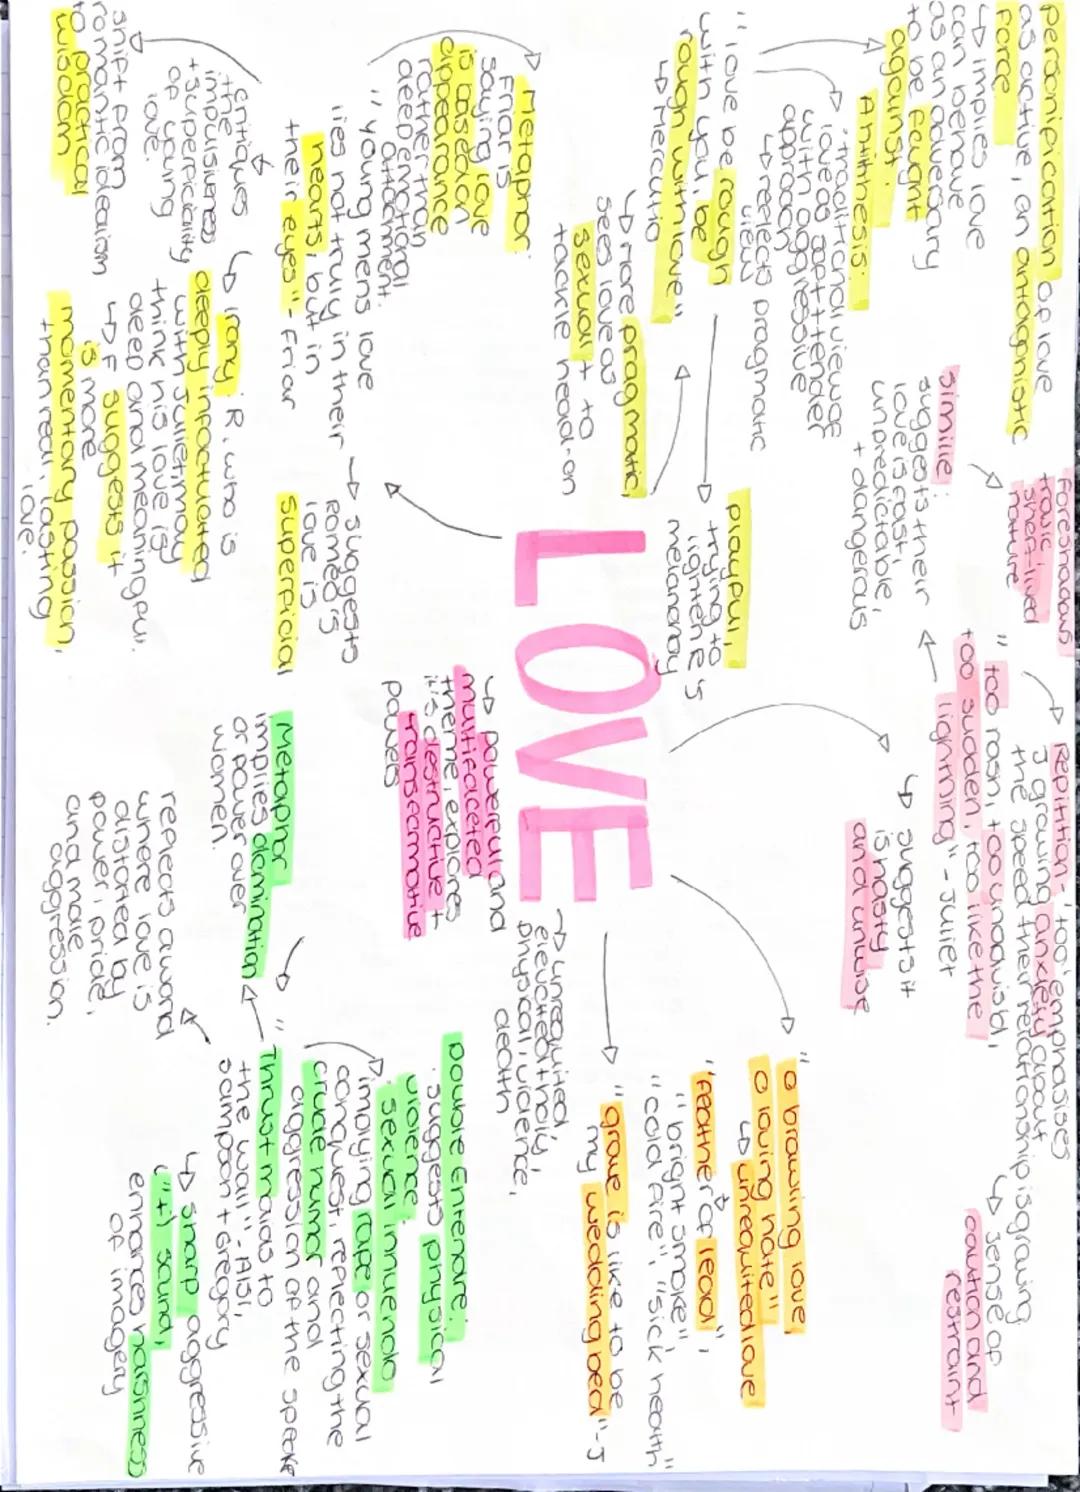 personification of love
as active, an antagonistic
force
↳ implies love
can behave
as an adversary
to be fought
against.
Antithesis:
'traditional view of
love as soft + tender
with aggressive
approach
↳ reflects pragmatic
views
"love be rough
with you, be
rough with love"
↳ Mercutio
↳ More pragmatic,
sees love as
sexual + to
tackle head-on
playful,
trying to
lighten R's
melancholy
foreshadows
tragic
short-lived
nature
simile:
suggests their
love is fast,
unpredictable,
+ dangerous
Repitition - 'too' emphasises
J growing anxiety about
the speed their relationship is growing
↳ sense of
caution and
restraint
"too rash, too unadvis'd,
too sudden, too like the
lightning" - Juliet
↳ suggests it
is hasty
and unwise
LOVE
↳ powerful and
multifaceted
theme, explores
it's destructive +
transformative
powers
→ unrequited,
physical, violence,
death
"o brawling love,
o loving hate"
↳ unrequited love
"feather of lead",
"bright smoke",
"cold fire", "sick health"
"grave is like to be
my wedding bed" - J
Metaphor:
Friar is
saying love
is based on
appearance
rather than
deep emotional
attachment.
"young mens love
lies not truly in their
hearts, but in
their eyes" - Friar
→ suggests
Romeo's
love is
superficial
critiques
the
impulsiveness
+ superficiality
of young
love.
shift from
romantic idealism
to practical
wisdom
↳ irony: R, who is
deeply infactuated
with Juliet, may
think his love is
deep and meaningful.
↳ F suggests it
is more
momentary passion,
than real, lasting
love.
Metaphor
implies domination
or power over
women.
reflects a world
where love is
distorted by
power, pride,
and male
aggression.
Double Entendre:
suggests physical
violence.
sexual innuendo
implying rape or sexual
conquest, reflecting the
crude humor and
aggression of the speaker
"Thrust maids to
the wall" - A1S1,
Sampson + Gregory
↳ sharp aggressive
"t" sound,
enhances harshness
of imagery